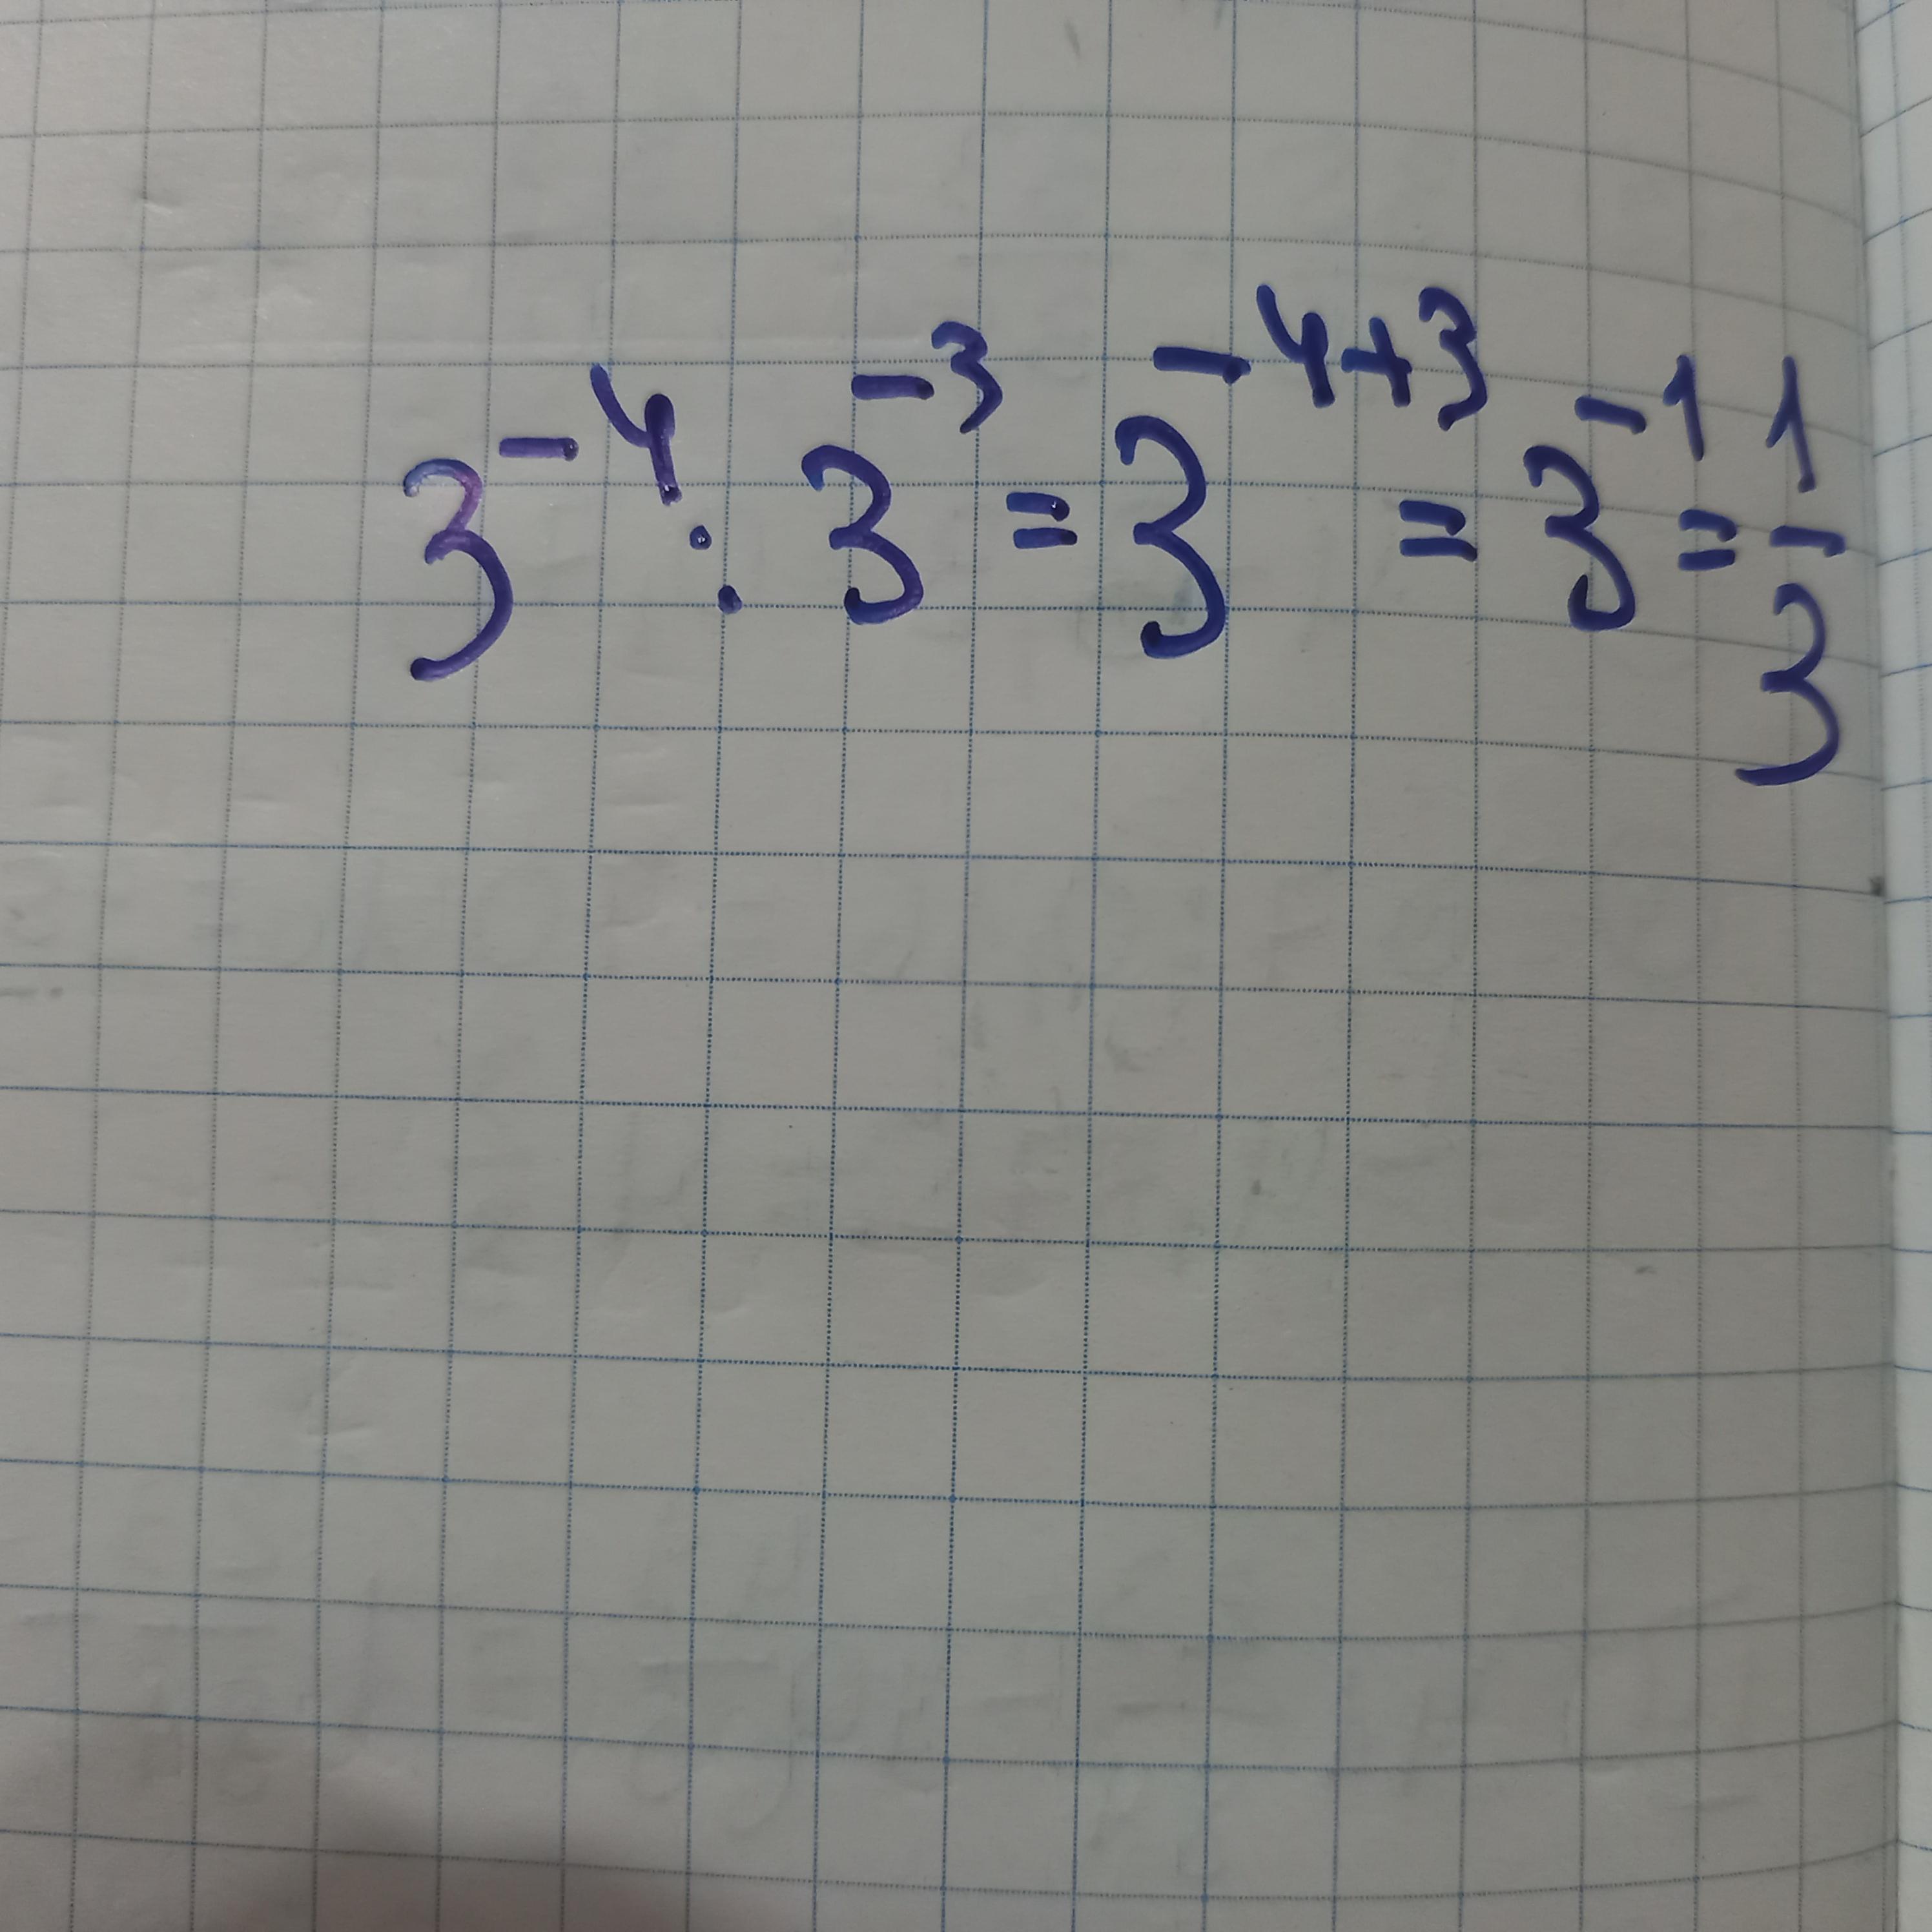 3⁻⁴ : 3⁻³ = 3⁻⁴⁺³ = 3⁻¹ = 1/3